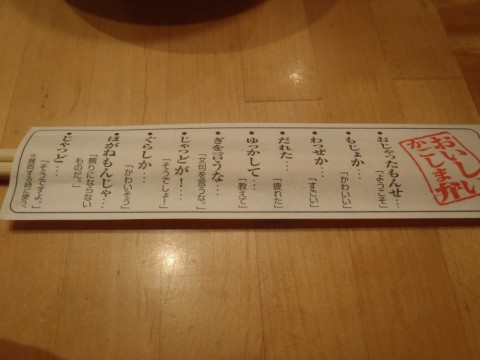 おいしい
かごしまが
•おじゃったもんせ…
「ようこそ」
•もじょか…
「かわいい」
•わっぜか…
「すごい」
•だれた…
「疲れた」
•ゆっかして…
「教えて」
•ぎを言うな…
「文句を言うな。」
•じゃっどが！…
「そうでしょー」
•ぐらしか…
「かわいそう」
•はがねもんじゃ…
「頼りにならない
ものだ。」
•じゃっど…
「そうですよ。」